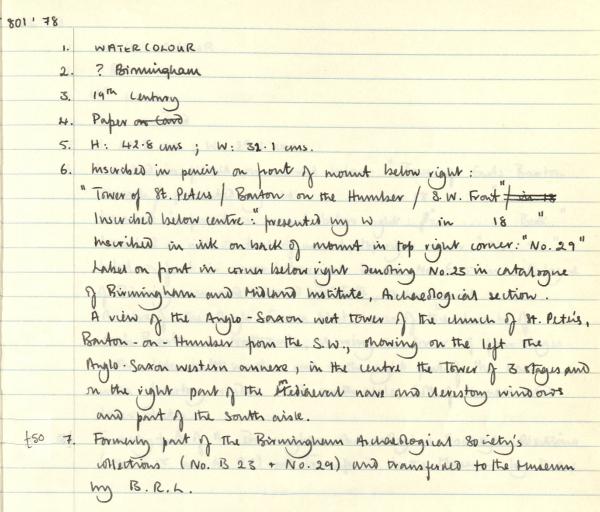 801'78
1. WATERCOLOUR
2. ? Birmingham
3. 19th Century
4. Paper on Card
5. H: 42.8 cms ; W: 32.1 cms.
6. Inscribed in pencil on front of mount below right:
"Tower of St. Peters / Barton on the Humber / S.W. Front" / in 18
Inscribed below centre: "presented by W in 18 "
Inscribed in ink on back of mount in top right corner: "No. 29"
Label on front in corner below right denoting No. 25 in catalogue
of Birmingham and Midland Institute, Archaeological section.
A view of the Anglo-Saxon west tower of the church of St. Peter's,
Barton-on-Humber from the S.W., showing on the left the
Anglo-Saxon western annexe, in the centre the tower of 3 stages and
on the right part of the Mediaeval nave and clerestory windows
and part of the south aisle.
£50 7. Formerly part of the Birmingham Archaeological Society's
collections (No. B 23 + No. 29) and transferred to the Museum
by B.R.L.